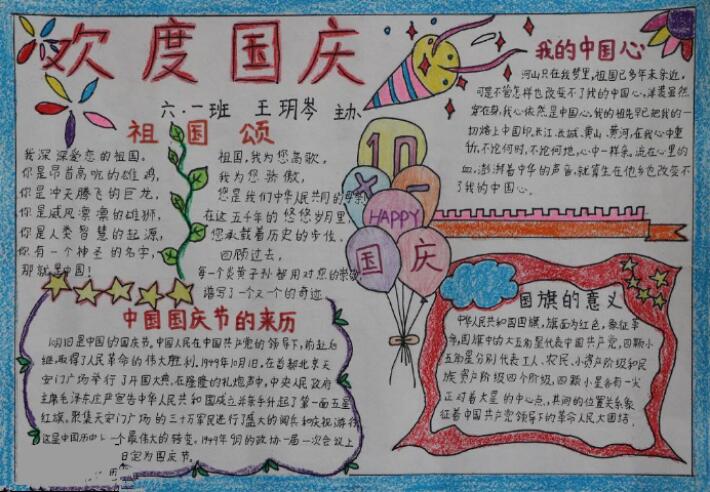 欢度国庆
六.一班 王玥岑 主办
祖国颂
我深深爱恋的祖国。
你是昂首高吭的雄鸡,
你是冲天腾飞的巨龙,
你是威风凛凛的雄狮,
你是人类智慧的起源,
你有一个神圣的名字,
那就是中国!
祖国,我为您高歌,
我为您骄傲,
您是我们中华人民共同的母亲
在这五千年的悠悠岁月里,
您承载着历史的步伐、
回顾过去,
每一个炎黄子孙都用对您的崇敬
谱写了一个又一个的奇迹
10
×一
HAPPY
国庆
我的中国心
河山只在我梦里,祖国已多年未亲近,
可是不管怎样也改变不了我的中国心,洋装虽然
穿在身,我心依然是中国心,我的祖先早已把我的一
切烙上中国印,长江、长城、黄山、黄河,在我心中重
千斤,不论何时,不论何地,心中一样亲,流在心里的
血,澎湃着中华的声音,就算生在他乡也改变不
了我的中国心.
中国国庆节的来历
10月1日是中国的国庆节,中国人民在中国共产党的领导下,前赴后
继,取得了人民革命的伟大胜利.1949年10月1日,在首都北京天
安门广场举行了开国大典,在隆隆的礼炮声中,中央人民政府
主席毛泽东庄严宣告中华人民共和国成立并亲手升起了第一面五星
红旗,聚集天安门广场的三十万军民进行了盛大的阅兵和庆祝游行
这是中国历史上一个最伟大的转变,1949年 的政协一届一次会议上
日定为国庆节.
国旗的意义
中华人民共和国国旗,旗面为红色,象征革
命,国旗中的大五角星代表中国共产党,四颗小
五角星分别代表工人、农民、小资产阶级和民
族资产阶级四个阶级,四颗小星各有一尖
正对着大星的中心点,其间的位置关系象
征着中国共产党领导下的革命人民大团结.